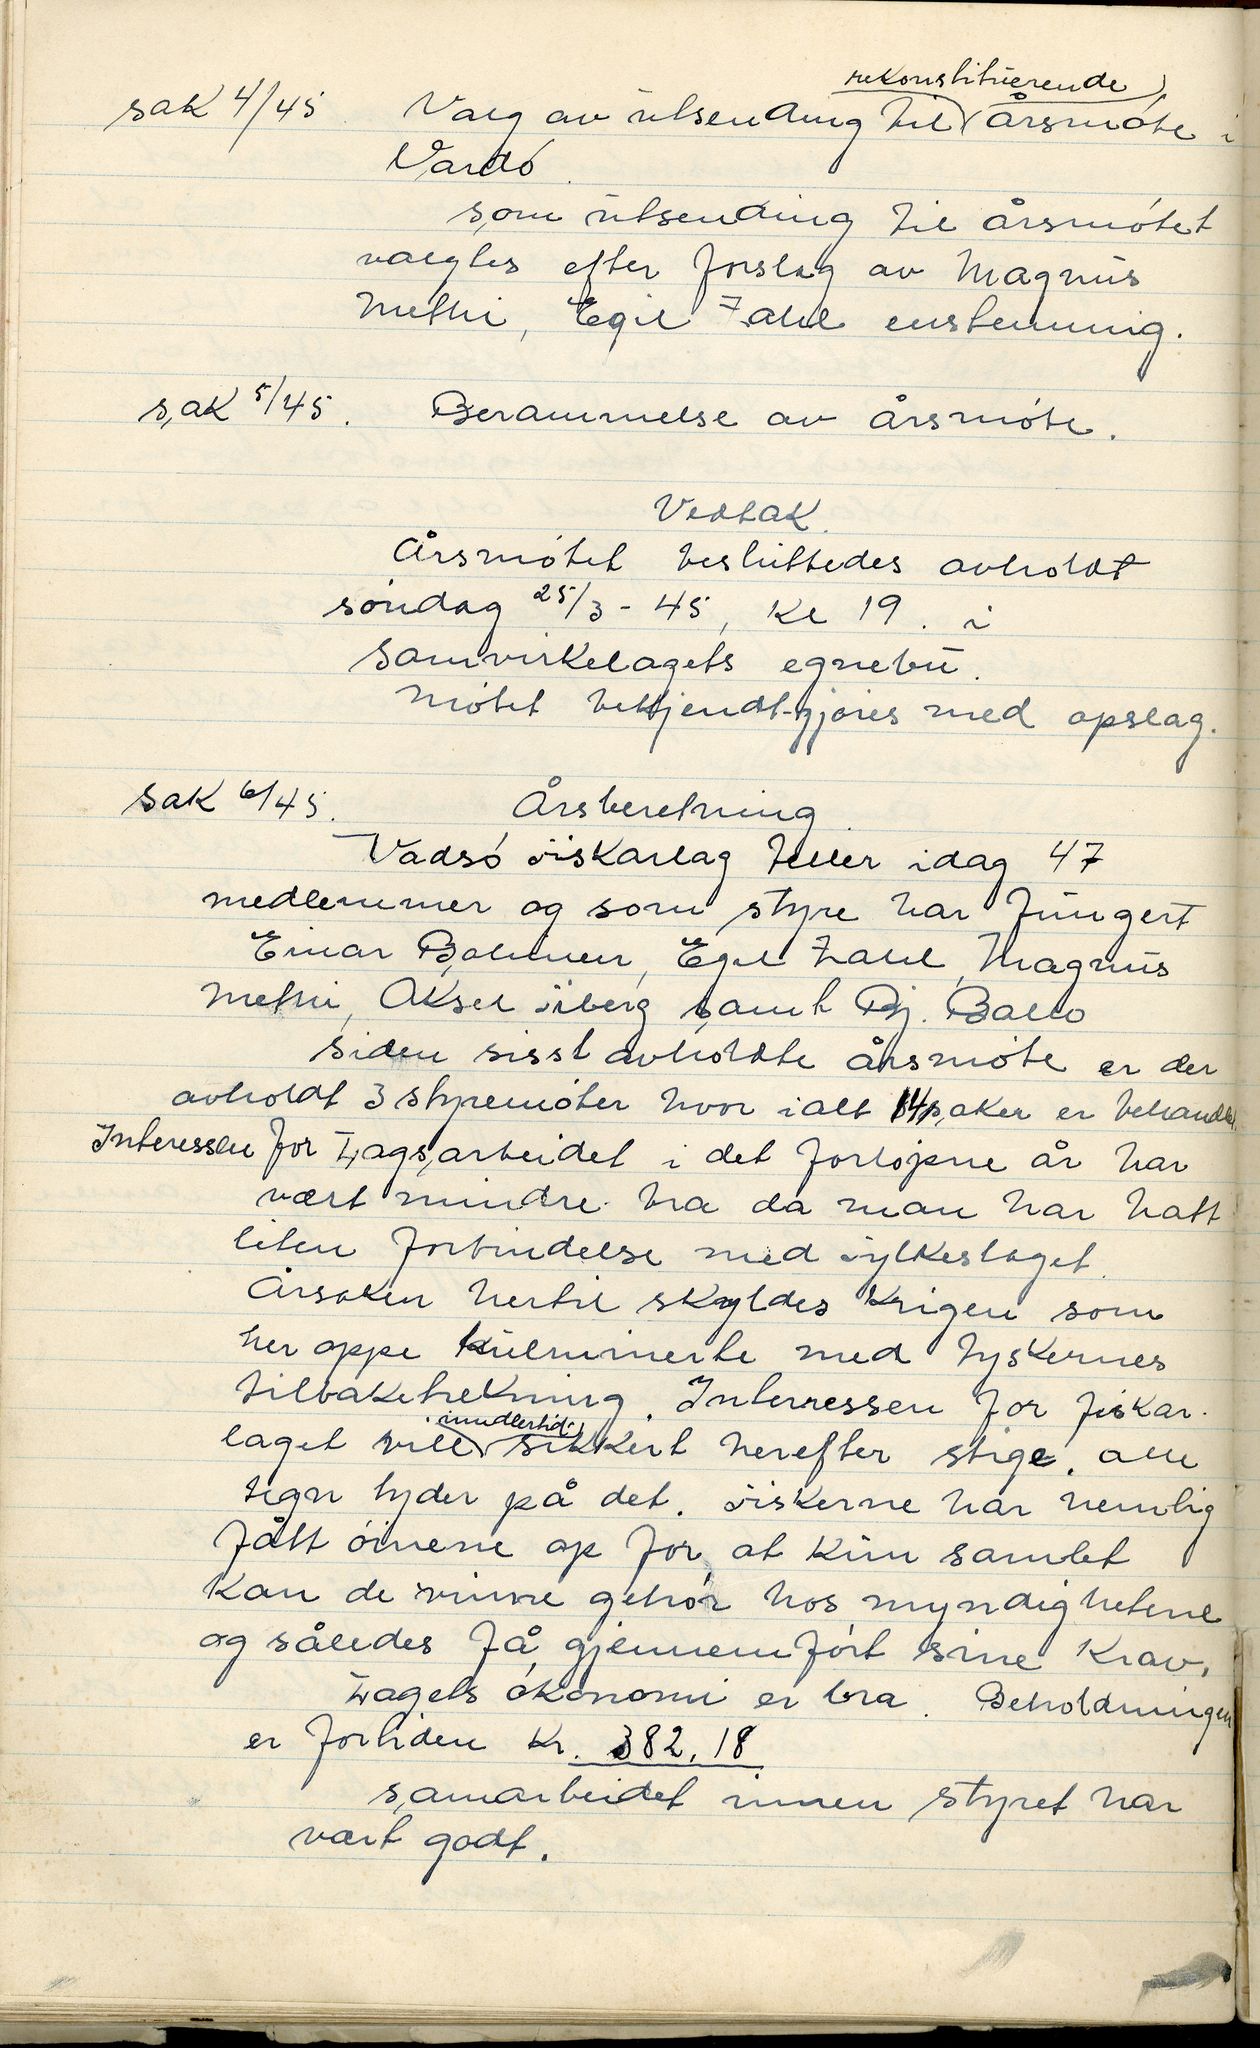 rekonstituerende
sak 4/45 Valg av utsending til årsmøte i
Vardø.
som utsending til årsmøtet
valgtes efter forslag av Magnus
Methi, Egil Zahl enstemmig.
sak 5/45. Berammelse av årsmøte.
Vedtak.
Årsmøtet besluttedes avholdt
søndag 25/3-45, kl 19. i
samvirkelagets egnebu.
møtet bekjendt-gjøres med opslag.
sak 6/45. Årsberetning.
Vadsø Fiskarlag teller idag 47
medlemmer og som styre har fungert
Einar Egil Zahl, Magnus
Methi, Aksel samt Bj. Ballo
siden sisst avholdte årsmøte er der
avholdt 3 styremøter hvor ialt 14 saker er behandlet.
Interessen for Lagsarbeidet i det forløpne år har
vært mindre bra da man har hatt
liten forbindelse med Fylkeslaget.
Årsaken hertil skyldes krigen som
her oppe kulminerte med tyskernes
tilbaketrekning. Interressen for fiskar-
imidlertid
laget vill sikkert herefter stige. alle
tegn tyder på det. Fiskerne har nemlig
fått øinene op for at kun samlet
kan de vinne gehør hos myndighetene
og således få gjennemført sine krav.
Lagets økonomi er bra. Beholdningen
er fortiden kr. 382,18.
samarbeidet innen styret har
vært godt.